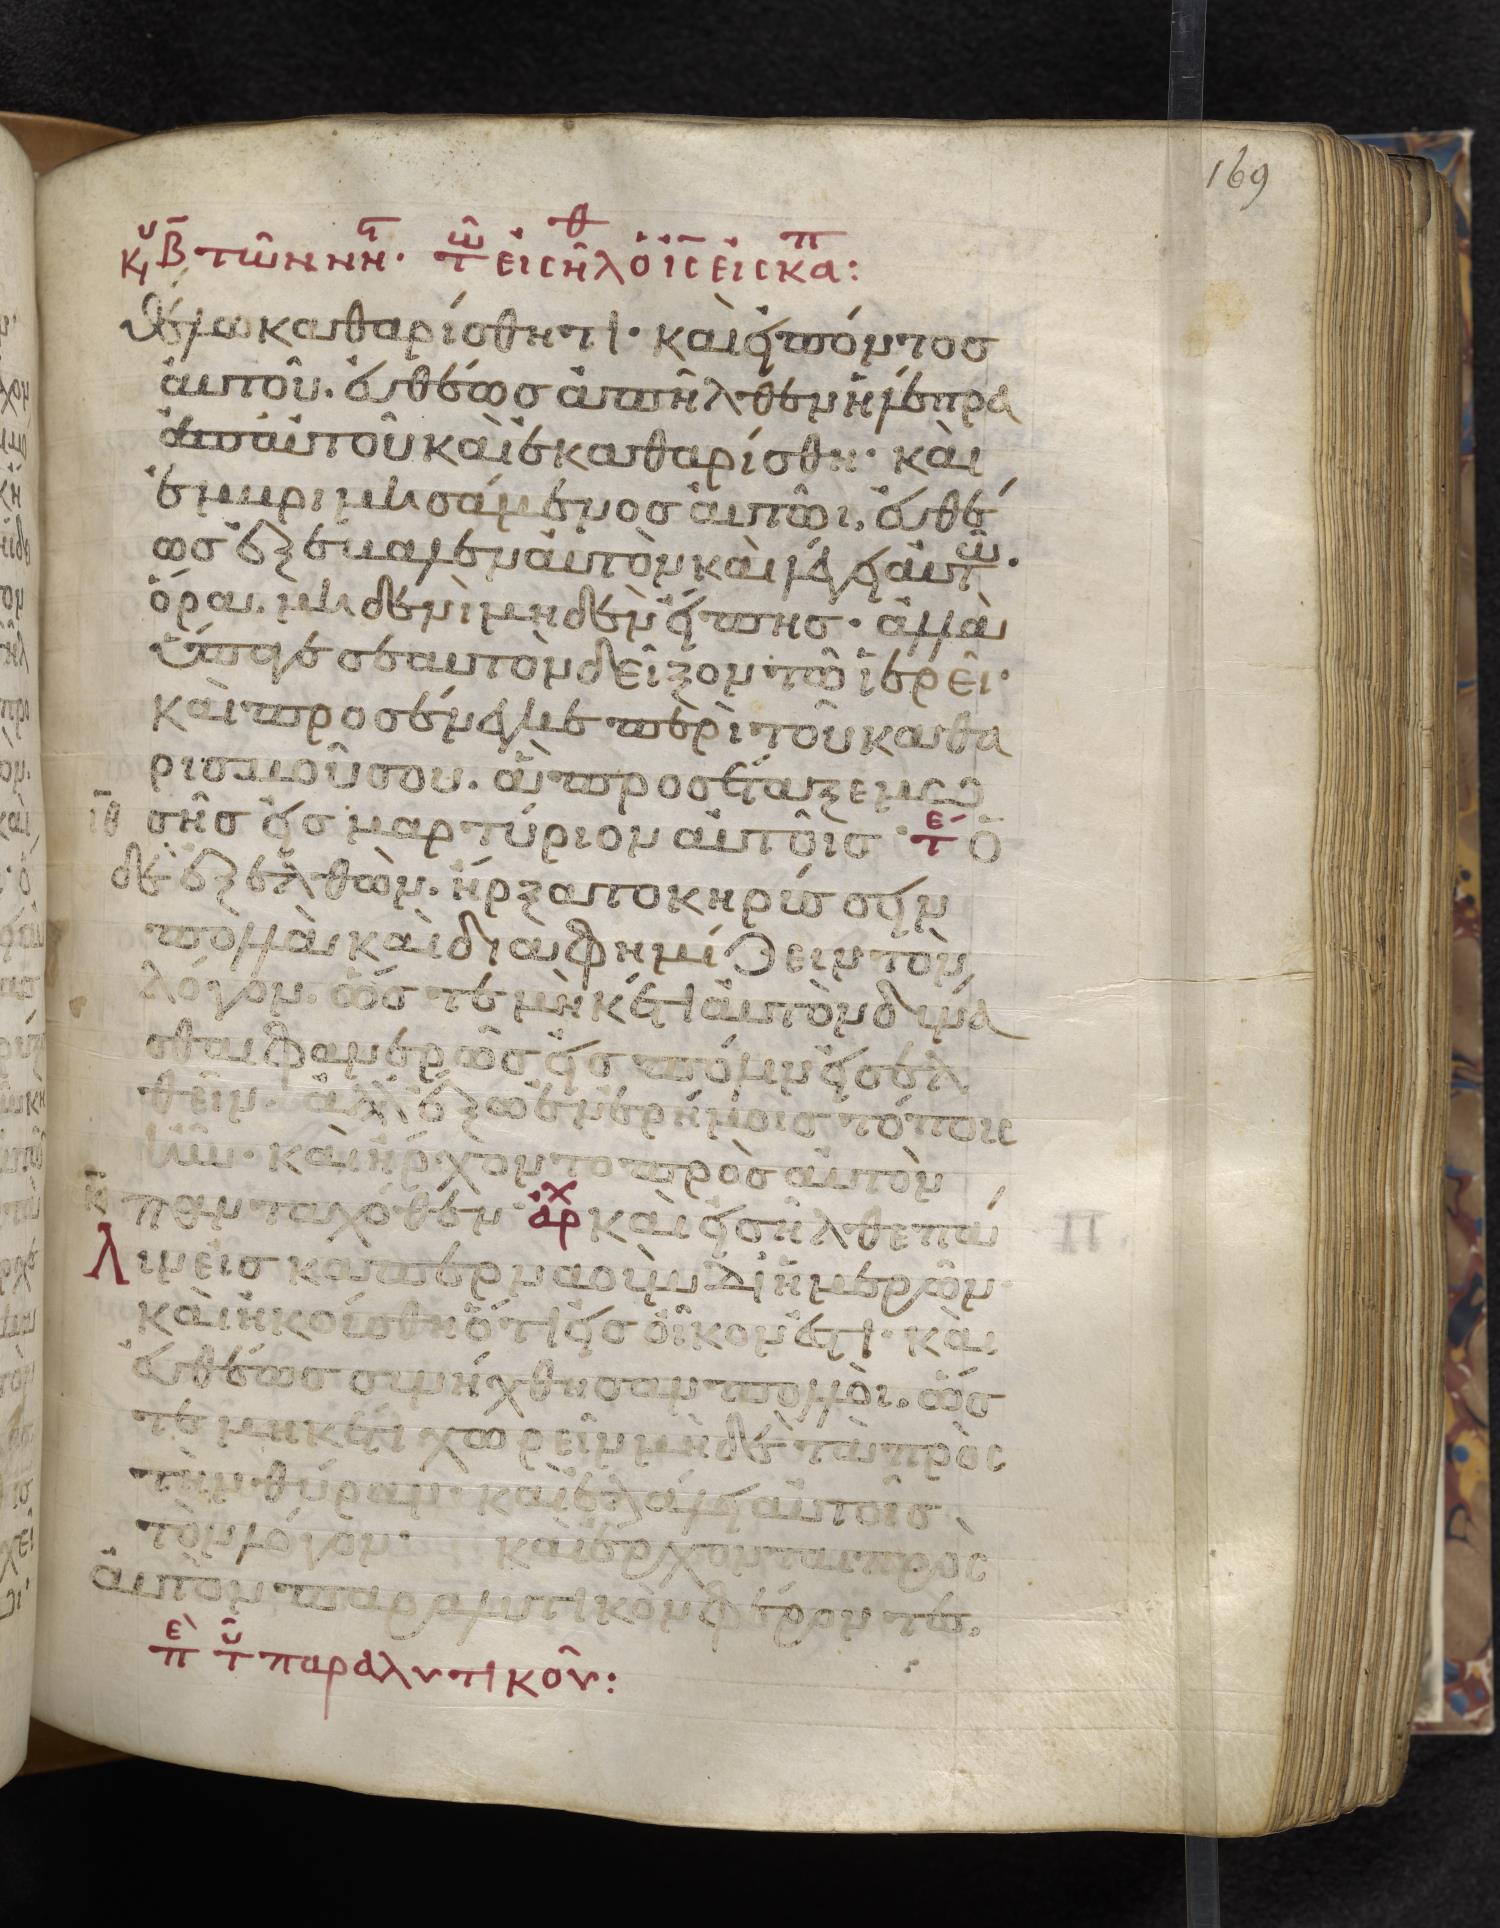 κυ β τῶν νηϛ· τῶ εἰσῆλθ ὁ ις εἰς καπ:
θέλω καθαρίσθητι· καὶ εἰπόντος
αὐτοῦ. εὐθέως ἀπῆλθεν ἡ λέπρα
ἀπαὐτοῦ καὶ ἐκαθαρίσθη· καὶ
ἐμβριμησάμενος αὐτῶι, εὐθέ
ως ἐξέβαλεν αὐτὸν καὶ λέγει αὐτῶ·
ὅρα. μηδενὶ μηδὲν εἴπης· ἀλλὰ
ὕπαγε σεαυτὸν δεῖξον τῶ ἱερεῖ·
καὶ προσένεγκε περὶ τοῦ καθα
ρισμοῦ σου. ἃ προσέταξε μω
ιθ σῆς εἰς μαρτύριον αὐτοῖς· τε ὁ
δὲ ἐξελθὼν. ἤρξατο κηρύσσειν
πολλὰ καὶ διαφημίζειν τὸν
λόγον. ὥς τε μὴκέτι αὐτὸν δύνα
σθαι φανερῶς εἰς πόλιν εἰσελ
θεῖν. ἀλλ ἔξω ἐν ἐρήμοις τόποις
ἦν· καὶ ἤρχοντο πρὸς αὐτὸν
κ πανταχόθεν· ἀρχ καὶ εἰσῆλθε πά
λιν εἰς καπερναοὺμ δι ἡμερῶν·
καὶ ἠκούσθη ὅτι εἰς οἶκον ἐστι· καὶ
εὐθέως συνήχθησαν πολλοὶ. ὥς
τε μηκέτι χωρεῖν μὴδὲ τὰ πρὸς
τὴν θύραν· καὶ ἐλάλει αὐτοῖς
τὸν λόγον· καὶ ἔρχονται πρὸς
αὐτὸν παραλυτικὸν φέροντες.
πε τοῦ παραλυτικοῦ:
169